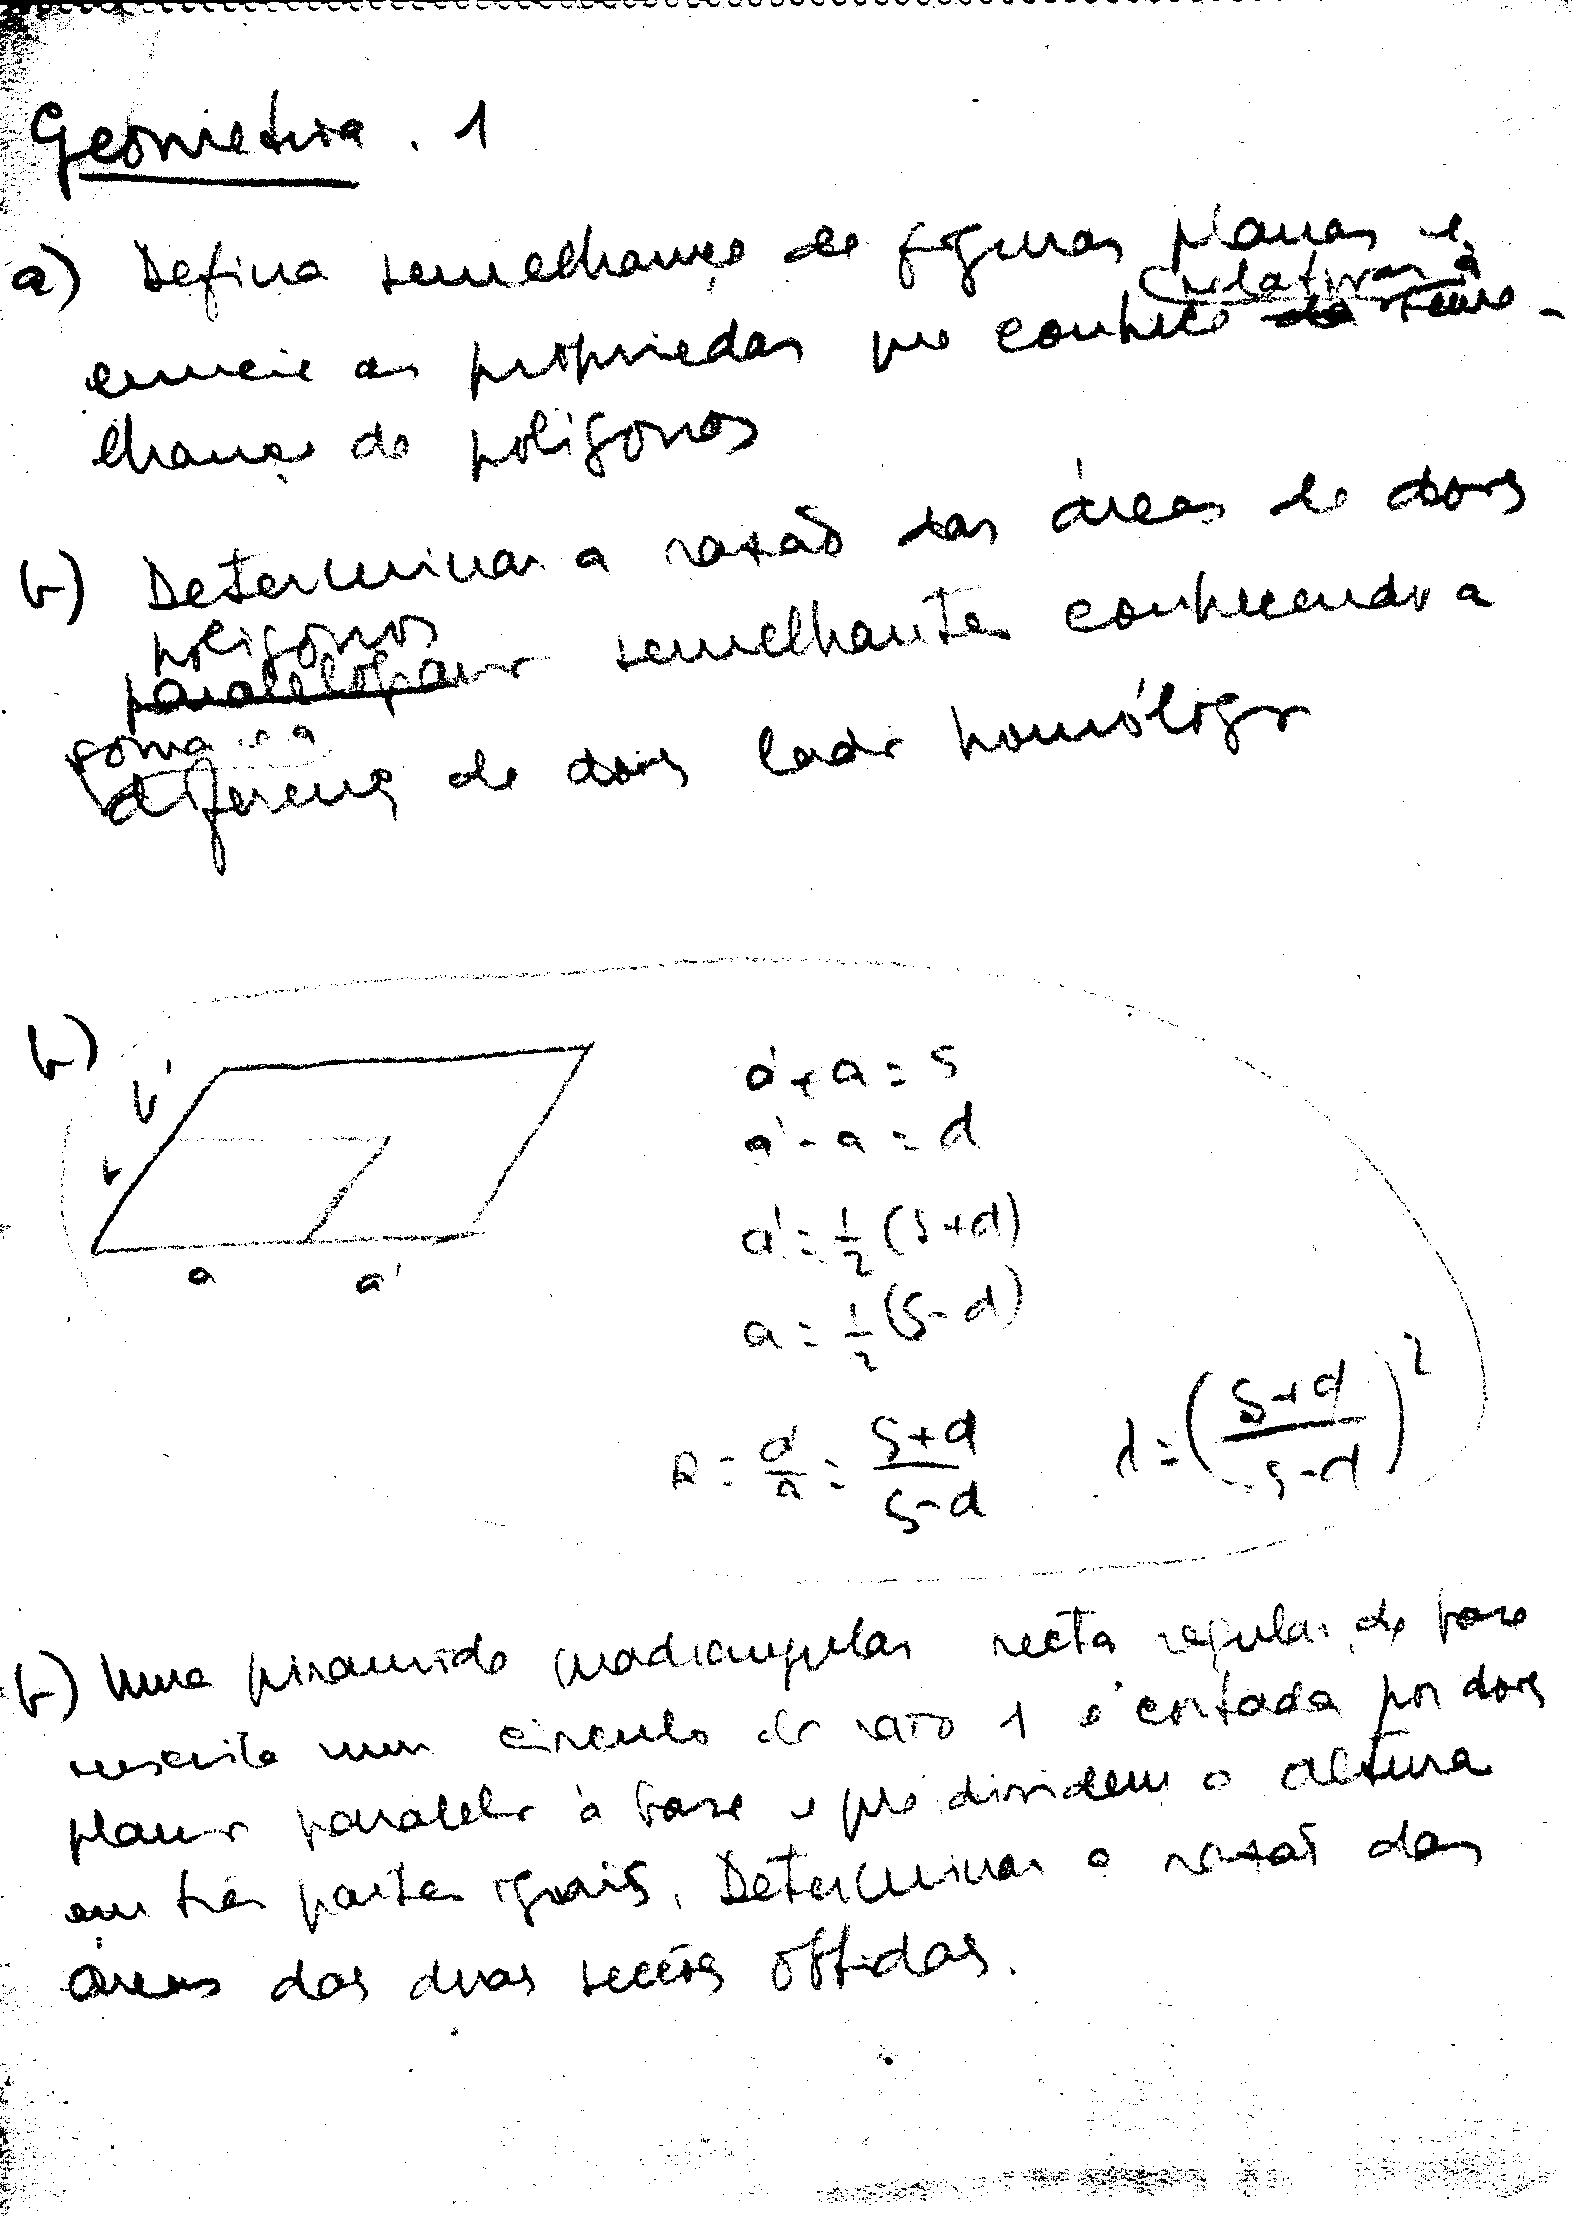 Geometria. 1
a) Defina semelhança de figuras planas e
relativas à
enuncie as propriedades que conhece da seme-
lhança de polígonos
b) Determinar a razão das áreas de dois
polígonos
paralelogramos semelhantes conhecendo a
soma e a
diferença de dois lados homólogos
b)
b'
b
a a'
a'+a = s
a'-a = d
a' = 1/2 (s+d)
a = 1/2 (s-d)
R = a'/a = (s+d)/(s-d) λ = ((s+d)/(s-d))²
b) Uma pirâmide quadrangular recta regular, de base
inscrita num círculo de raio 1 é cortada por dois
planos paralelos à base e que dividem a altura
em três partes iguais. Determinar a razão das
áreas das duas secções obtidas.